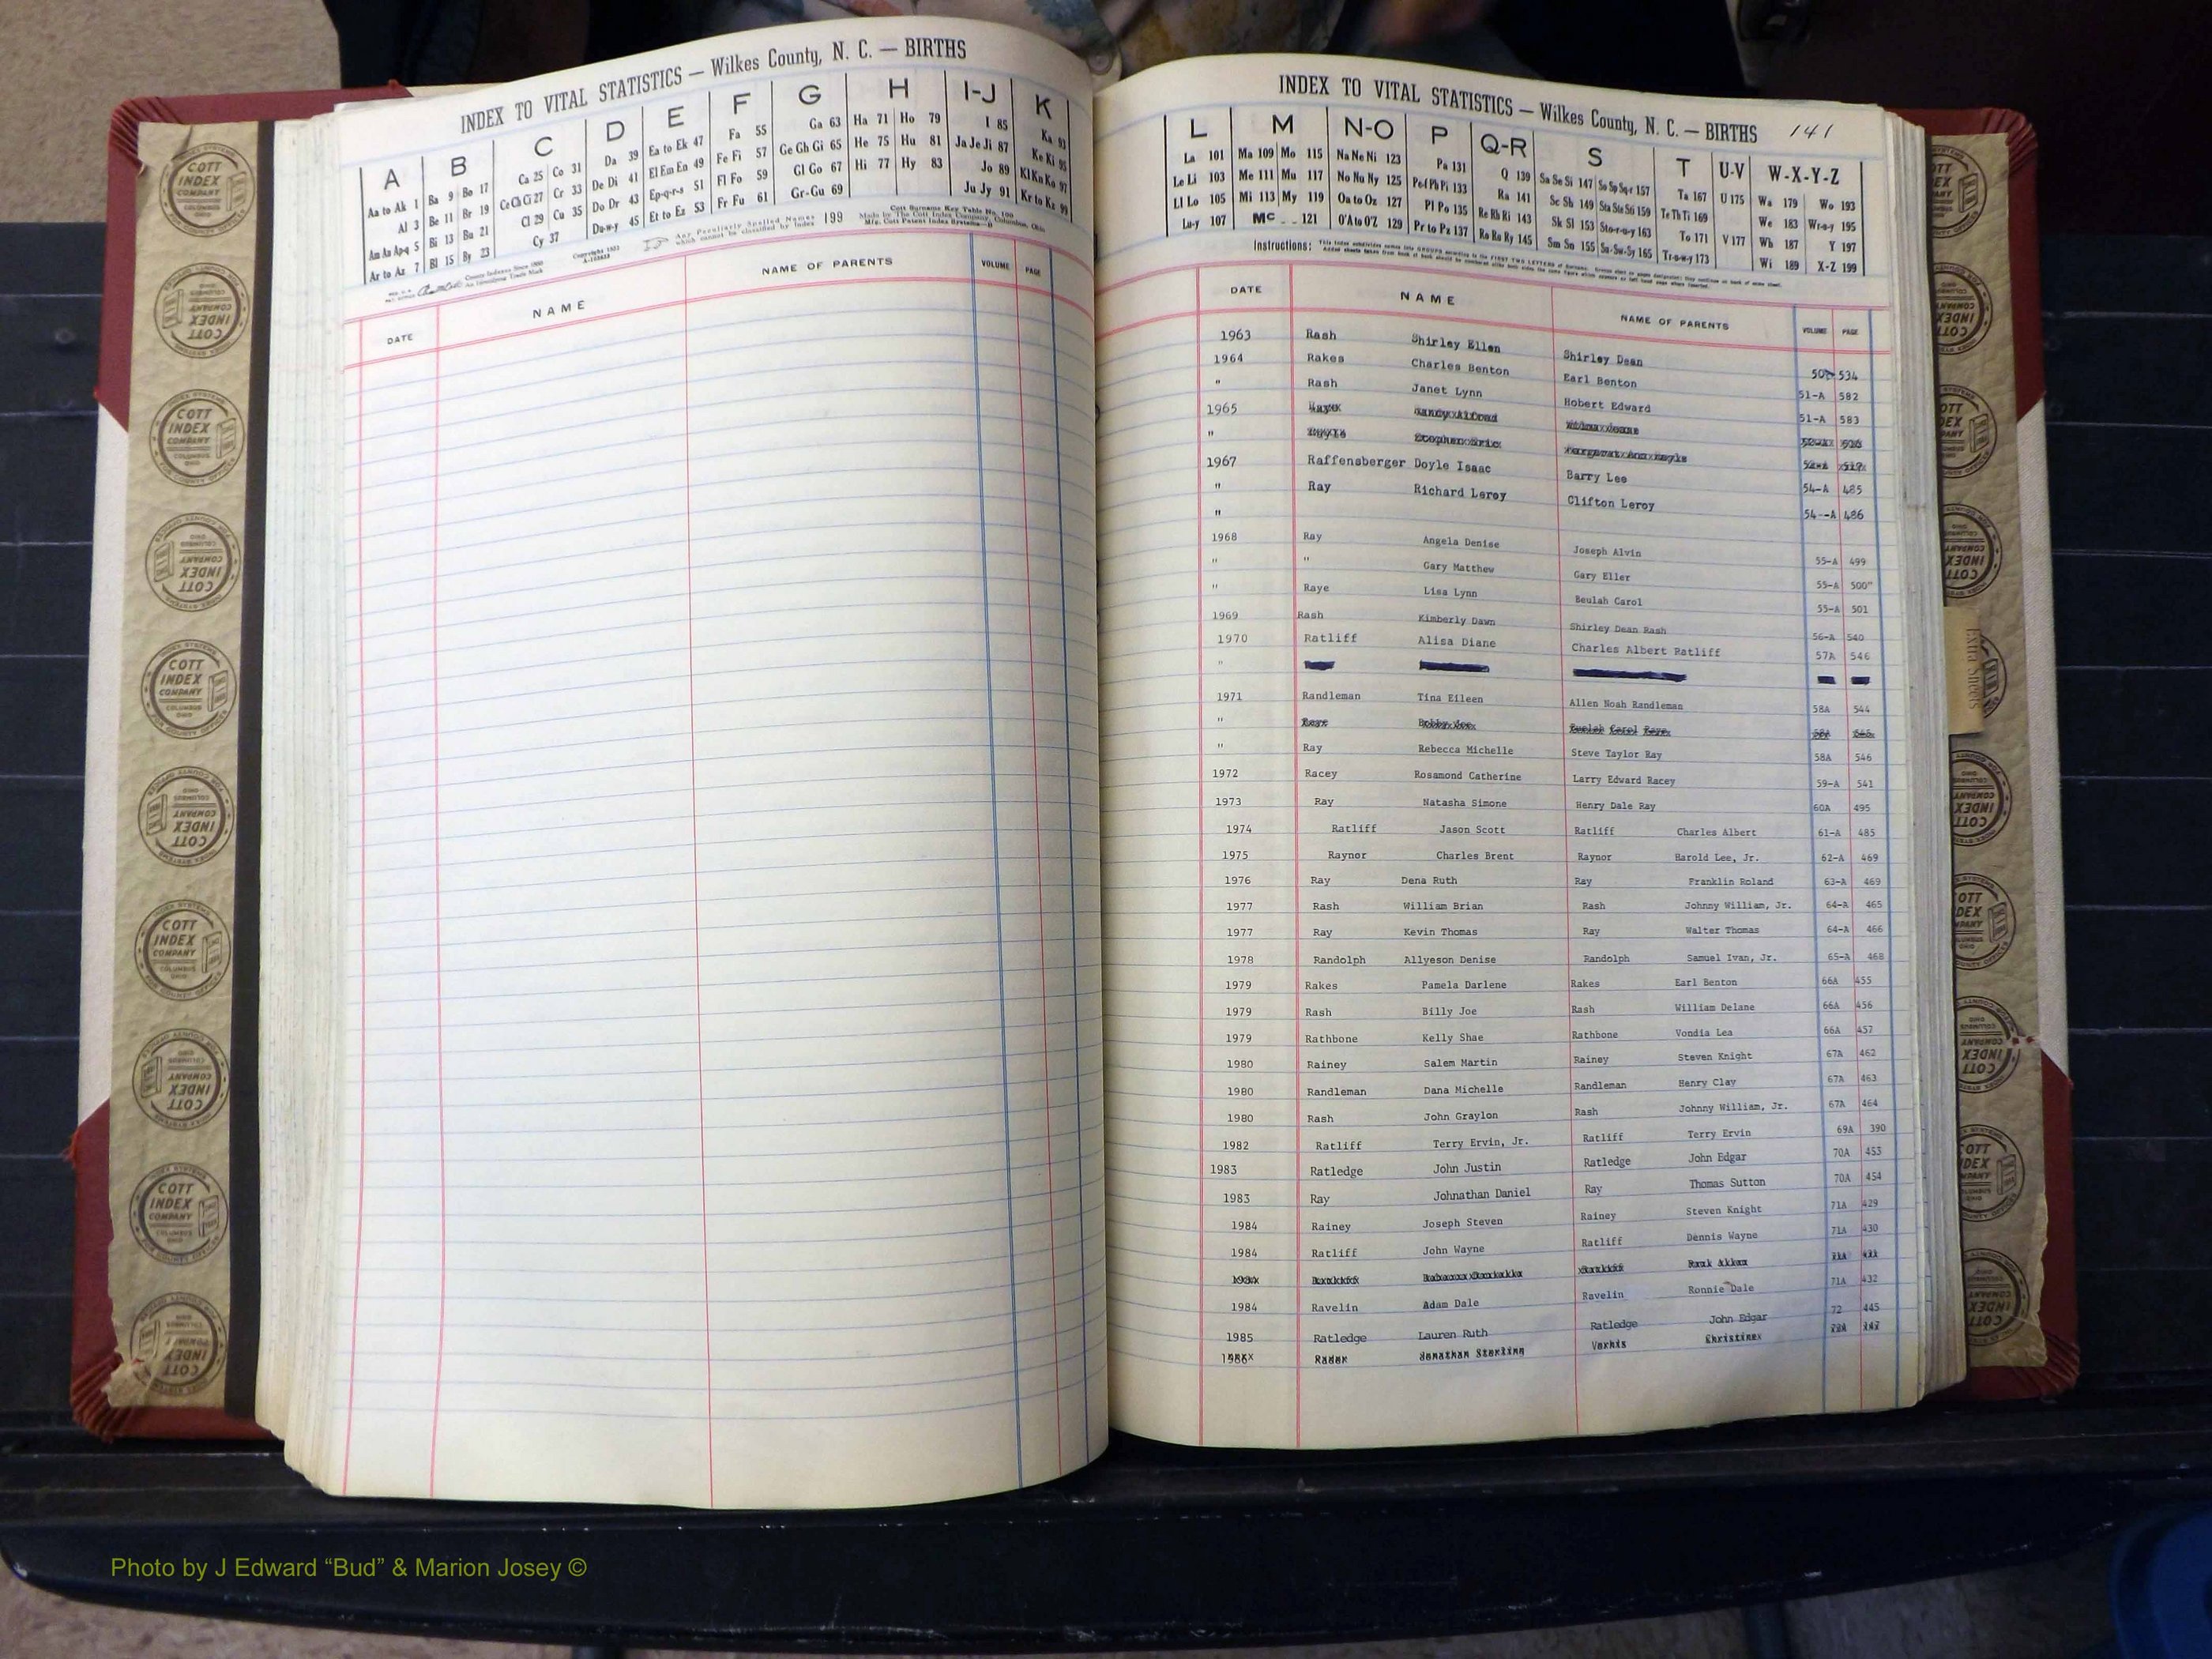 INDEX TO VITAL STATISTICS — Wilkes County, N. C. — BIRTHS
A B C D E F G H I-J K
Aa to Ak 1 Ba 9 Bo 17 Ca 25 Co 31 Da 39 Ea to Ek 47 Fa 55 Ga 63 Ha 71 Ho 79 I 85 Ka 93
Al 3 Be 11 Br 19 Ce Ch Ci 27 Cr 33 De Di 41 El Em En 49 Fe Fi 57 Ge Gh Gi 65 He 75 Hu 81 Ja Je Ji 87 Ke Ki 95
Am An Ap-q 5 Bi 13 Bu 21 Cl 29 Cu 35 Do Dr 43 Ep-q-r-s 51 Fl Fo 59 Gl Go 67 Hi 77 Hy 83 Jo 89 Kl Kn Ko 97
Ar to Az 7 Bl 15 By 23 Cy 37 Du-w-y 45 Et to Ez 53 Fr Fu 61 Gr-Gu 69 Ju Jy 91 Kr to Kz 99
Any Peculiarly Spelled Names which cannot be classified by Index 199
Cott Surname Key Table No. 100
Made by The Cott Index Company, Columbus, Ohio
DATE NAME NAME OF PARENTS VOLUME PAGE
INDEX TO VITAL STATISTICS — Wilkes County, N. C. — BIRTHS 141
L M N-O P Q-R S T U-V W-X-Y-Z
La 101 Ma 109 Mo 115 Na Ne Ni 123 Pa 131 Q 139 Sa Se Si 147 So Sp Sq-r 157 Ta 167 U 175 Wa 179 Wo 193
Le Li 103 Me 111 Mu 117 No Nu Ny 125 Pe-f Ph Pi 133 Ra 141 Sc Sh 149 Sta Ste Sti 159 Te Th Ti 169 We 183 Wr-u-y 195
Ll Lo 105 Mi 113 My 119 Oa to Oz 127 Pl Po 135 Re Rh Ri 143 Sk Sl 153 Sto-r-u-y 163 To 171 V 177 Wh 187 Y 197
Lu-y 107 Mc 121 O'A to O'Z 129 Pr to Pz 137 Ro Ru Ry 145 Sm Sn 155 Su-Sw-Sy 165 Tr-u-w-y 173 Wi 189 X-Z 199
Instructions:
DATE NAME NAME OF PARENTS VOLUME PAGE
1963 Rash Shirley Ellen Shirley Dean 534
1964 Rakes Charles Benton Earl Benton 51-A 582
" Rash Janet Lynn Hobert Edward 51-A 583
1965
"
1967 Raffensberger Doyle Isaac Barry Lee 54-A 485
" Ray Richard Leroy Clifton Leroy 54--A 486
"
1968 Ray Angela Denise Joseph Alvin 55-A 499
" " Gary Matthew Gary Eller 55-A 500"
" Raye Lisa Lynn Beulah Carol 55-A 501
1969 Rash Kimberly Dawn Shirley Dean Rash 56-A 540
1970 Ratliff Alisa Diane Charles Albert Ratliff 57A 546
"
1971 Randleman Tina Eileen Allen Noah Randleman 58A 544
"
" Ray Rebecca Michelle Steve Taylor Ray 58A 546
1972 Racey Rosamond Catherine Larry Edward Racey 59-A 541
1973 Ray Natasha Simone Henry Dale Ray 60A 495
1974 Ratliff Jason Scott Ratliff Charles Albert 61-A 485
1975 Raynor Charles Brent Raynor Harold Lee, Jr. 62-A 469
1976 Ray Dena Ruth Ray Franklin Roland 63-A 469
1977 Rash William Brian Rash Johnny William, Jr. 64-A 465
1977 Ray Kevin Thomas Ray Walter Thomas 64-A 466
1978 Randolph Allyeson Denise Randolph Samuel Ivan, Jr. 65-A 468
1979 Rakes Pamela Darlene Rakes Earl Benton 66A 455
1979 Rash Billy Joe Rash William Delane 66A 456
1979 Rathbone Kelly Shae Rathbone Vondia Lea 66A 457
1980 Rainey Salem Martin Rainey Steven Knight 67A 462
1980 Randleman Dana Michelle Randleman Henry Clay 67A 463
1980 Rash John Graylon Rash Johnny William, Jr. 67A 464
1982 Ratliff Terry Ervin, Jr. Ratliff Terry Ervin 69A 390
1983 Ratledge John Justin Ratledge John Edgar 70A 453
1983 Ray Johnathan Daniel Ray Thomas Sutton 70A 454
1984 Rainey Joseph Steven Rainey Steven Knight 71A 429
1984 Ratliff John Wayne Ratliff Dennis Wayne 71A 430
1984 Ravelin Adam Dale Ravelin Ronnie Dale 71A 432
1985 Ratledge Lauren Ruth Ratledge John Edgar 72 445
Extra Sheets
COTT INDEX COMPANY COLUMBUS OHIO
Photo by J Edward “Bud” & Marion Josey ©